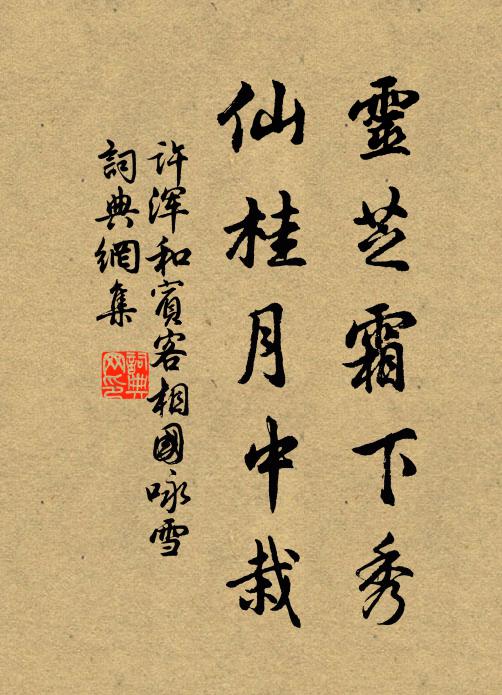 靈芝霜下秀
仙桂月中栽
許渾和賓客相國咏雪
詞典網集
詞典网印